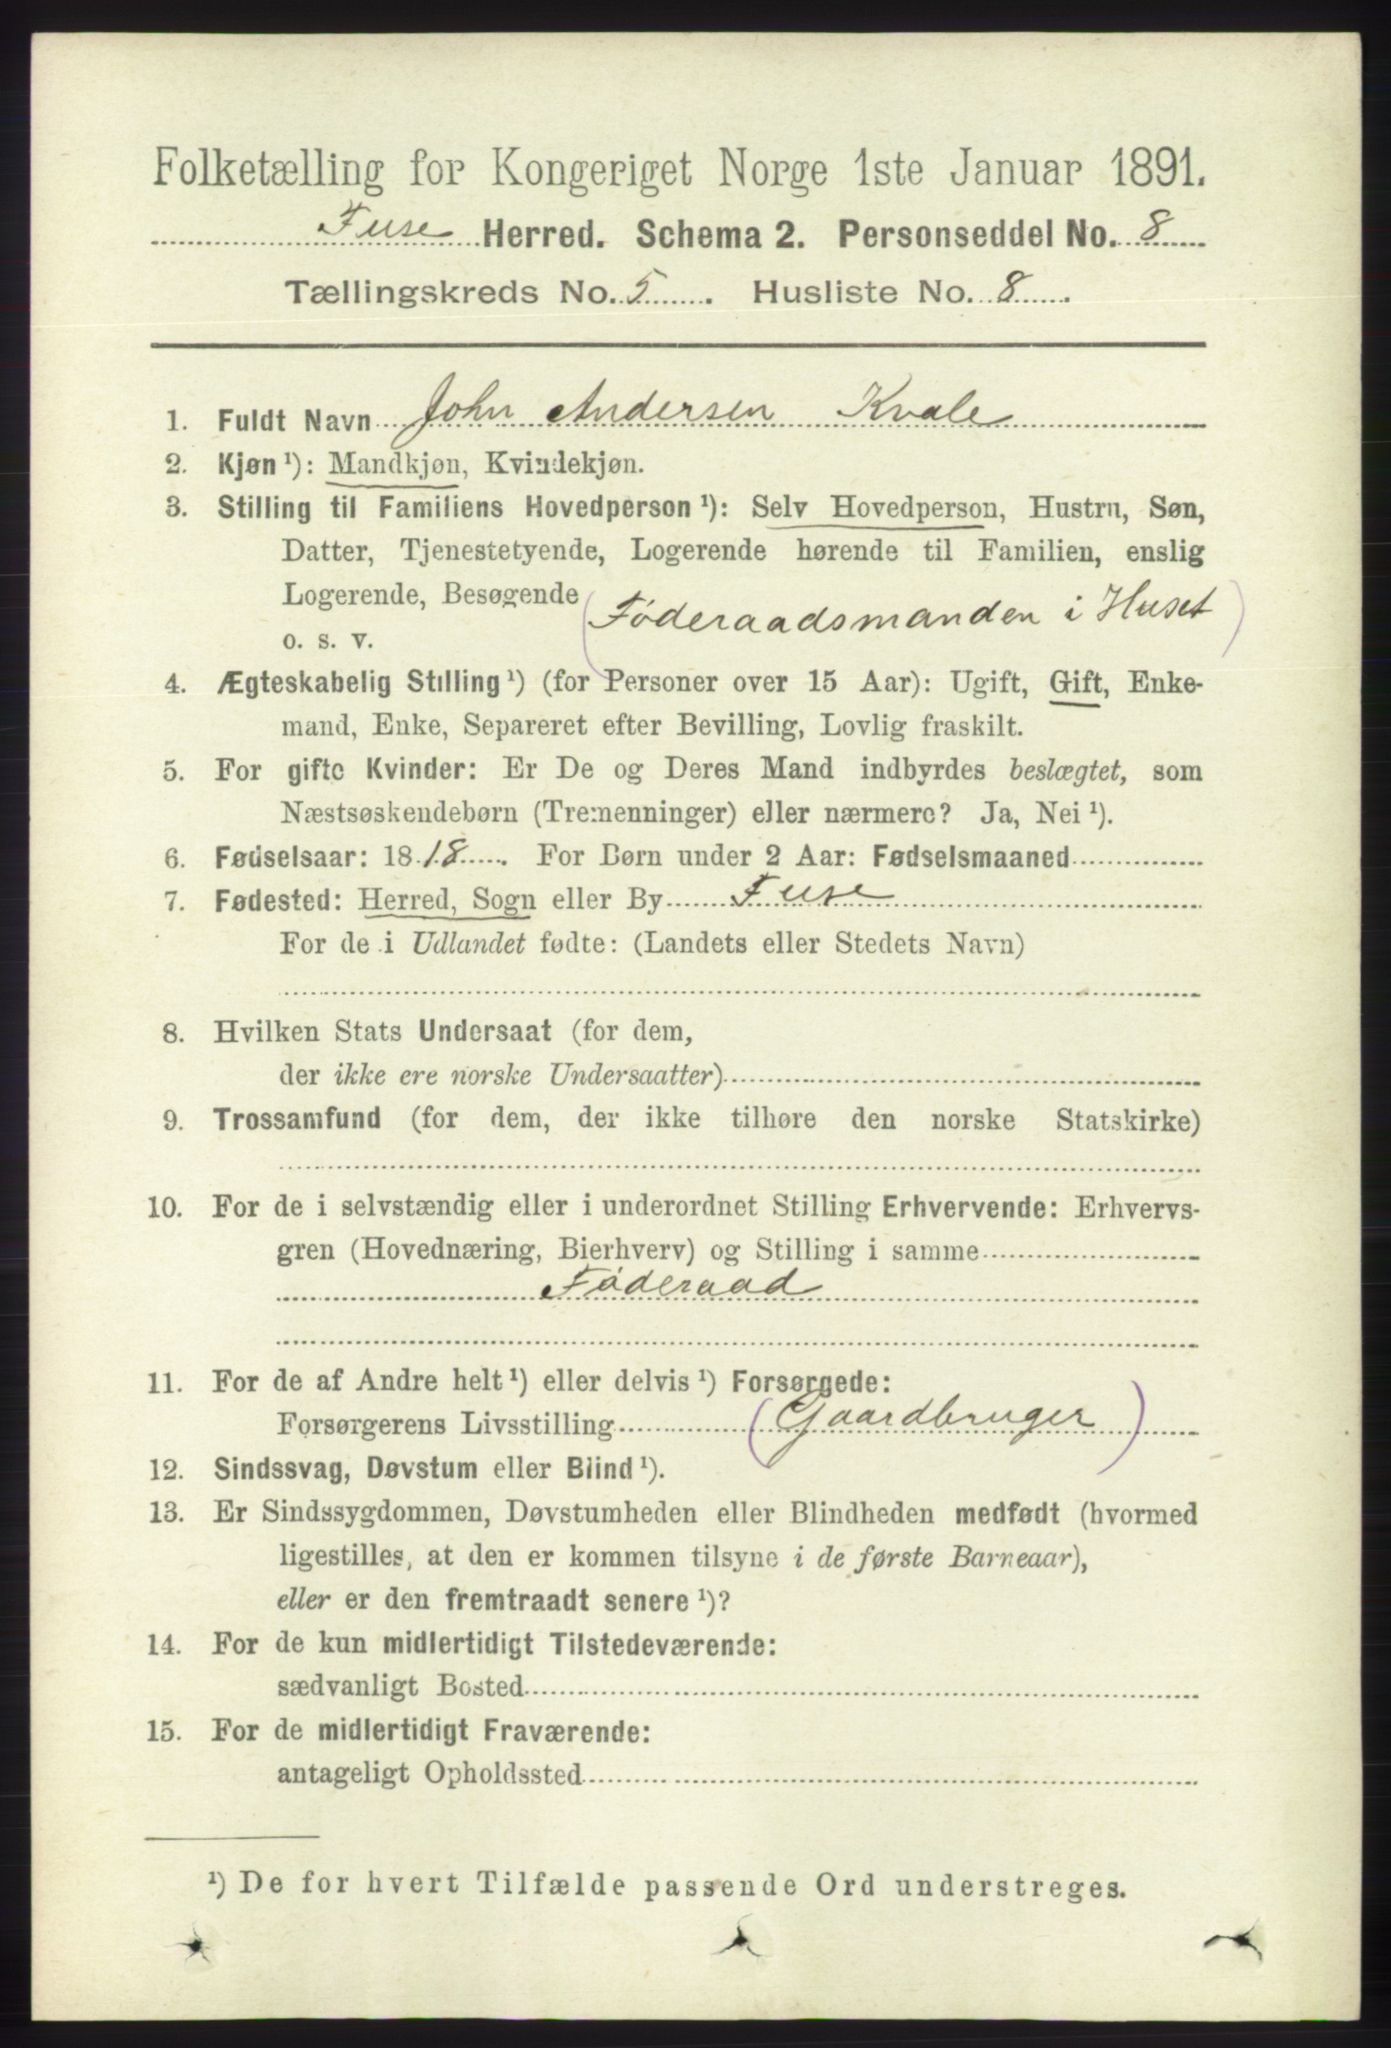 Folketælling for Kongeriget Norge 1ste Januar 1891.
Fuse Herred. Schema 2. Personseddel No. 8
Tællingskreds No. 5. Husliste No. 8.
1. Fuldt Navn John Andersen Kvale
2. Kjøn ¹): Mandkjøn, Kvindekjøn.
3. Stilling til Familiens Hovedperson ¹): Selv Hovedperson, Hustru, Søn,
Datter, Tjenestetyende, Logerende hørende til Familien, enslig
Logerende, Besøgende
o. s. v. (Føderaadsmanden i Huset)
4. Ægteskabelig Stilling ¹) (for Personer over 15 Aar): Ugift, Gift, Enke-
mand, Enke, Separeret efter Bevilling, Lovlig fraskilt.
5. For gifte Kvinder: Er De og Deres Mand indbyrdes beslægtet, som
Næstsøskendebørn (Tremenninger) eller nærmere? Ja, Nei ¹).
6. Fødselsaar: 1818. For Børn under 2 Aar: Fødselsmaaned
7. Fødested: Herred, Sogn eller By Fuse
For de i Udlandet fødte: (Landets eller Stedets Navn)
8. Hvilken Stats Undersaat (for dem,
der ikke ere norske Undersaatter)
9. Trossamfund (for dem, der ikke tilhøre den norske Statskirke)
10. For de i selvstændig eller i underordnet Stilling Erhvervende: Erhvervs-
gren (Hovednæring, Bierhverv) og Stilling i samme
Føderaad
11. For de af Andre helt ¹) eller delvis ¹) Forsørgede:
Forsørgerens Livsstilling (Gaardbruger)
12. Sindssvag, Døvstum eller Blind ¹).
13. Er Sindssygdommen, Døvstumheden eller Blindheden medfødt (hvormed
ligestilles, at den er kommen tilsyne i de første Barneaar),
eller er den fremtraadt senere ¹)?
14. For de kun midlertidigt Tilstedeværende:
sædvanligt Bosted
15. For de midlertidigt Fraværende:
antageligt Opholdssted
¹) De for hvert Tilfælde passende Ord understreges.